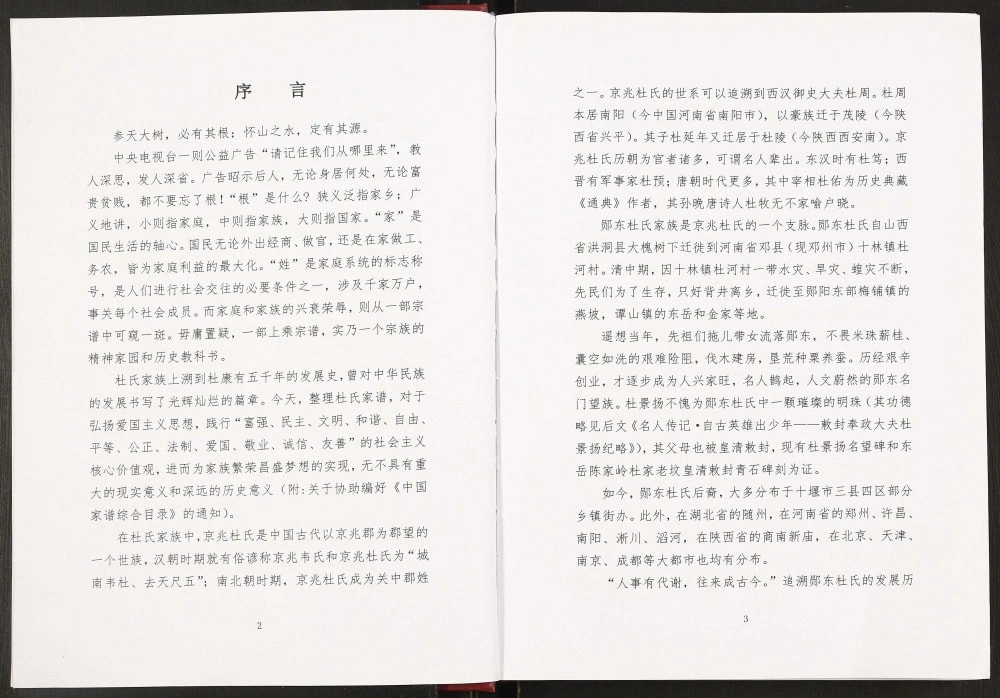 序 言
参天大树，必有其根；怀山之水，定有其源。
中央电视台一则公益广告“请记住我们从哪里来”，教
人深思，发人深省。广告昭示后人，无论身居何处，无论富
贵贫贱，都不要忘了根！“根”是什么？狭义泛指家乡；广
义地讲，小则指家庭，中则指家族，大则指国家。“家”是
国民生活的轴心。国民无论外出经商、做官，还是在家做工、
务农，皆为家庭利益的最大化。“姓”是家庭系统的标志称
号，是人们进行社会交往的必要条件之一，涉及千家万户，
事关每个社会成员。而家庭和家族的兴衰荣辱，则从一部宗
谱中可窥一斑。毋庸置疑，一部上乘宗谱，实乃一个宗族的
精神家园和历史教科书。
杜氏家族上溯到杜康有五千年的发展史，曾对中华民族
的发展书写了光辉灿烂的篇章。今天，整理杜氏家谱，对于
弘扬爱国主义思想，践行“富强、民主、文明、和谐、自由、
平等、公正、法制、爱国、敬业、诚信、友善”的社会主义
核心价值观，进而为家族繁荣昌盛梦想的实现，无不具有重
大的现实意义和深远的历史意义（附:关于协助编好《中国
家谱综合目录》的通知）。
在杜氏家族中，京兆杜氏是中国古代以京兆郡为郡望的
一个世族，汉朝时期就有俗谚称京兆韦氏和京兆杜氏为“城
南韦杜、去天尺五”；南北朝时期，京兆杜氏成为关中郡姓
2
之一。京兆杜氏的世系可以追溯到西汉御史大夫杜周。杜周
本居南阳（今中国河南省南阳市），以豪族迁于茂陵（今陕
西省兴平）。其子杜延年又迁居于杜陵（今陕西西安南）。京
兆杜氏历朝为官者诸多，可谓名人辈出。东汉时有杜笃；西
晋有军事家杜预；唐朝时代更多，其中宰相杜佑为历史典藏
《通典》作者，其孙晚唐诗人杜牧无不家喻户晓。
郧东杜氏家族是京兆杜氏的一个支脉。郧东杜氏自山西
省洪洞县大槐树下迁徙到河南省邓县（现邓州市）十林镇杜
河村。清中期，因十林镇杜河村一带水灾、旱灾、蝗灾不断，
先民们为了生存，只好背井离乡，迁徙至郧阳东部梅铺镇的
燕坡，谭山镇的东岳和金家等地。
遥想当年，先祖们拖儿带女流落郧东，不畏米珠薪桂、
囊空如洗的艰难险阻，伐木建房，垦荒种粟养蚕。历经艰辛
创业，才逐步成为人兴家旺，名人鹊起，人文蔚然的郧东名
门望族。杜景扬不愧为郧东杜氏中一颗璀璨的明珠（其功德
略见后文《名人传记·自古英雄出少年——敕封奉政大夫杜
景扬纪略》），其父母也被皇清敕封，现有杜景扬名望碑和东
岳陈家岭杜家老坟皇清敕封青石碑刻为证。
如今，郧东杜氏后裔，大多分布于十堰市三县四区部分
乡镇街办。此外，在湖北省的随州，在河南省的郑州、许昌、
南阳、淅川、滔河，在陕西省的商南新庙，在北京、天津、
南京、成都等大都市也均有分布。
“人事有代谢，往来成古今。”追溯郧东杜氏的发展历
3